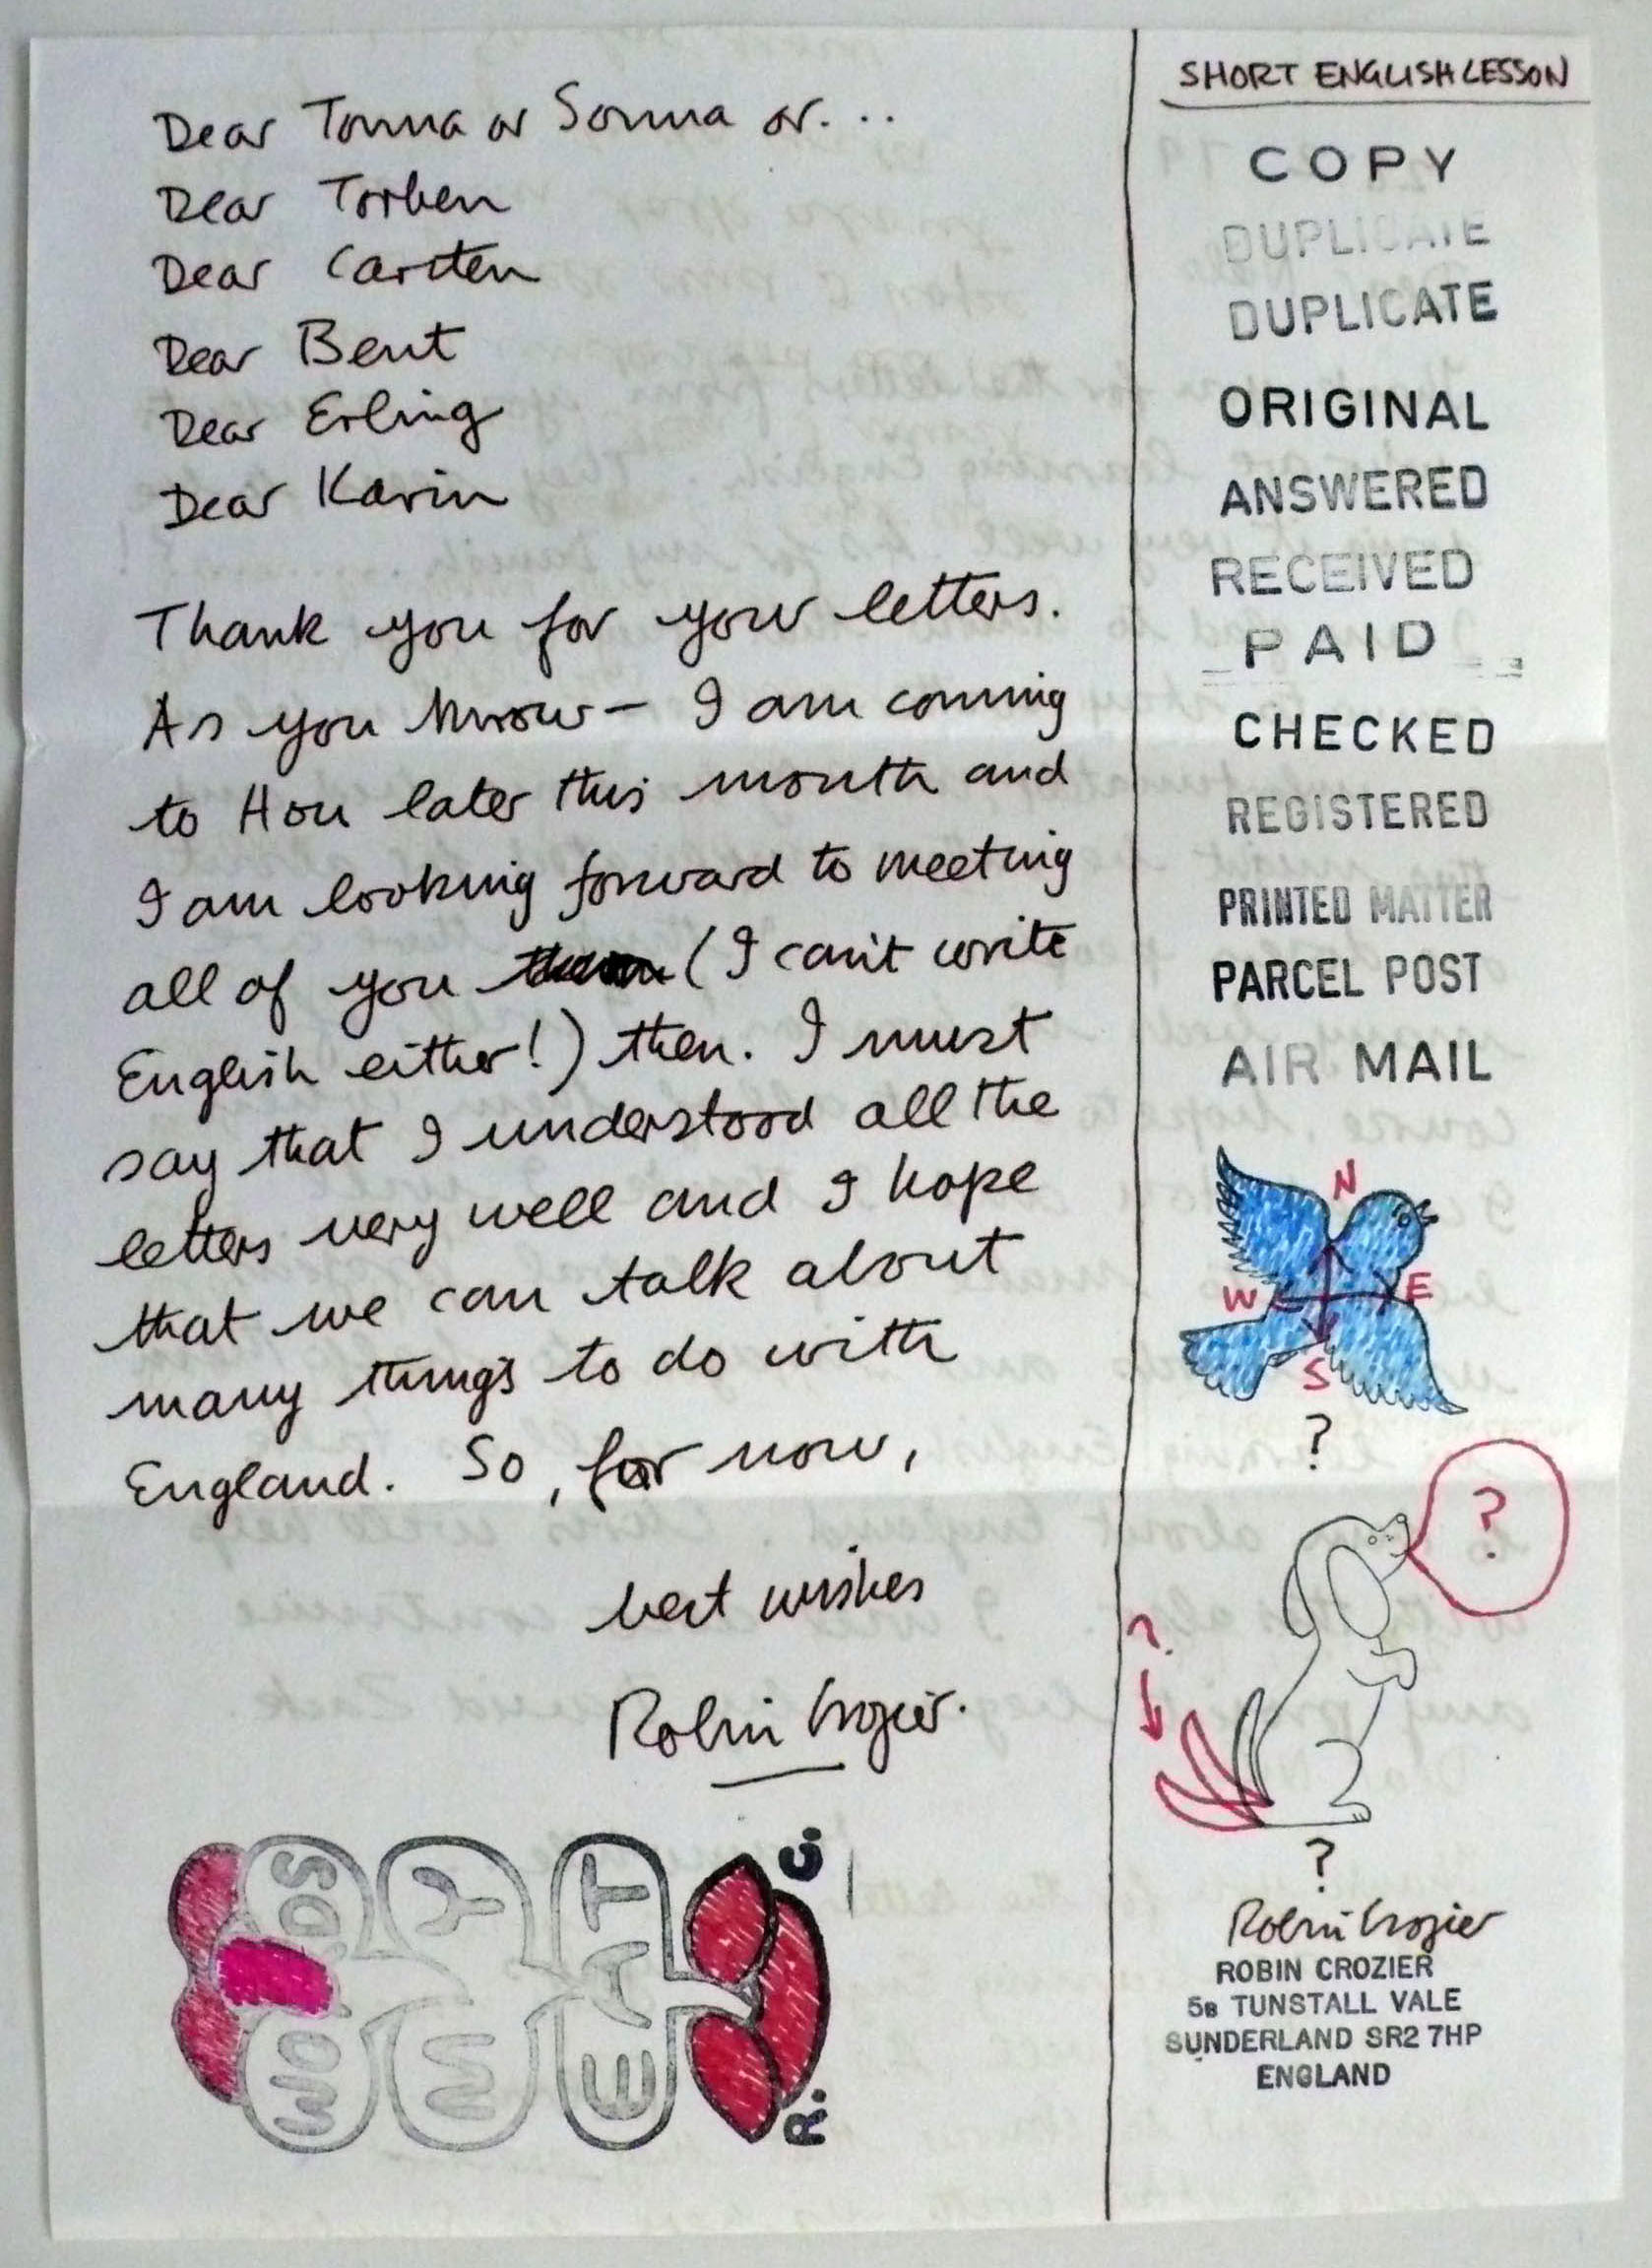 Dear Tonna or Sonna or...
Dear Torben
Dear Carsten
Dear Bent
Dear Erling
Dear Karin
Thank you for your letters.
As you know – I am coming
to Hou later this month and
I am looking forward to meeting
all of you (I can't write
English either!) then. I must
say that I understood all the
letters very well and I hope
that we can talk about
many things to do with
England. So, for now,
best wishes
Robin Crozier.
EAT
MY
WORDS
R. C.
SHORT ENGLISH LESSON
COPY
DUPLICATE
DUPLICATE
ORIGINAL
ANSWERED
RECEIVED
PAID
CHECKED
REGISTERED
PRINTED MATTER
PARCEL POST
AIR MAIL
N
W E
S
?
?
?
?
Robin Crozier
ROBIN CROZIER
5B TUNSTALL VALE
SUNDERLAND SR2 7HP
ENGLAND